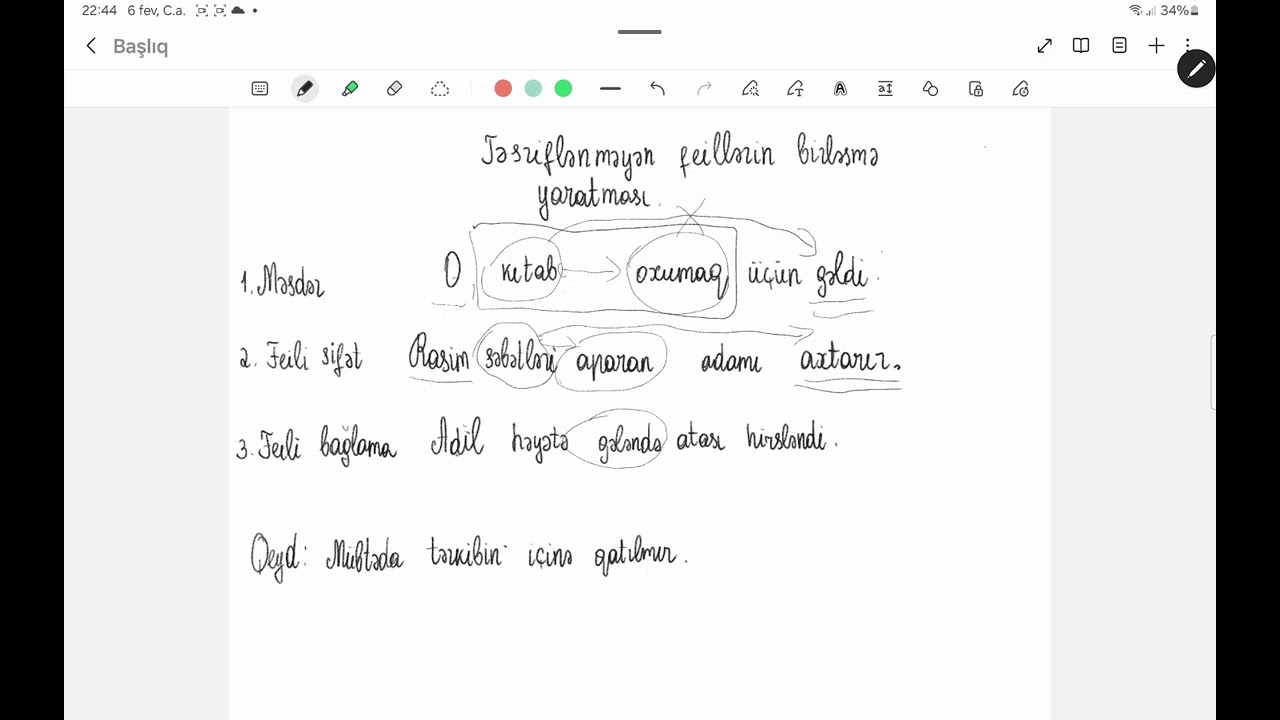 22:44 6 fev, C.a. 34%
Başlıq
Təsriflənməyən feillərin birləşmə
yaratması.
1. Məsdər O kitab oxumaq üçün gəldi.
2. Feili sifət Rasim səbətləri aparan adamı axtarır.
3. Feili bağlama Adil həyətə gələndə atası hirsləndi.
Qeyd: Mübtəda tərkibin içinə qatılmır.